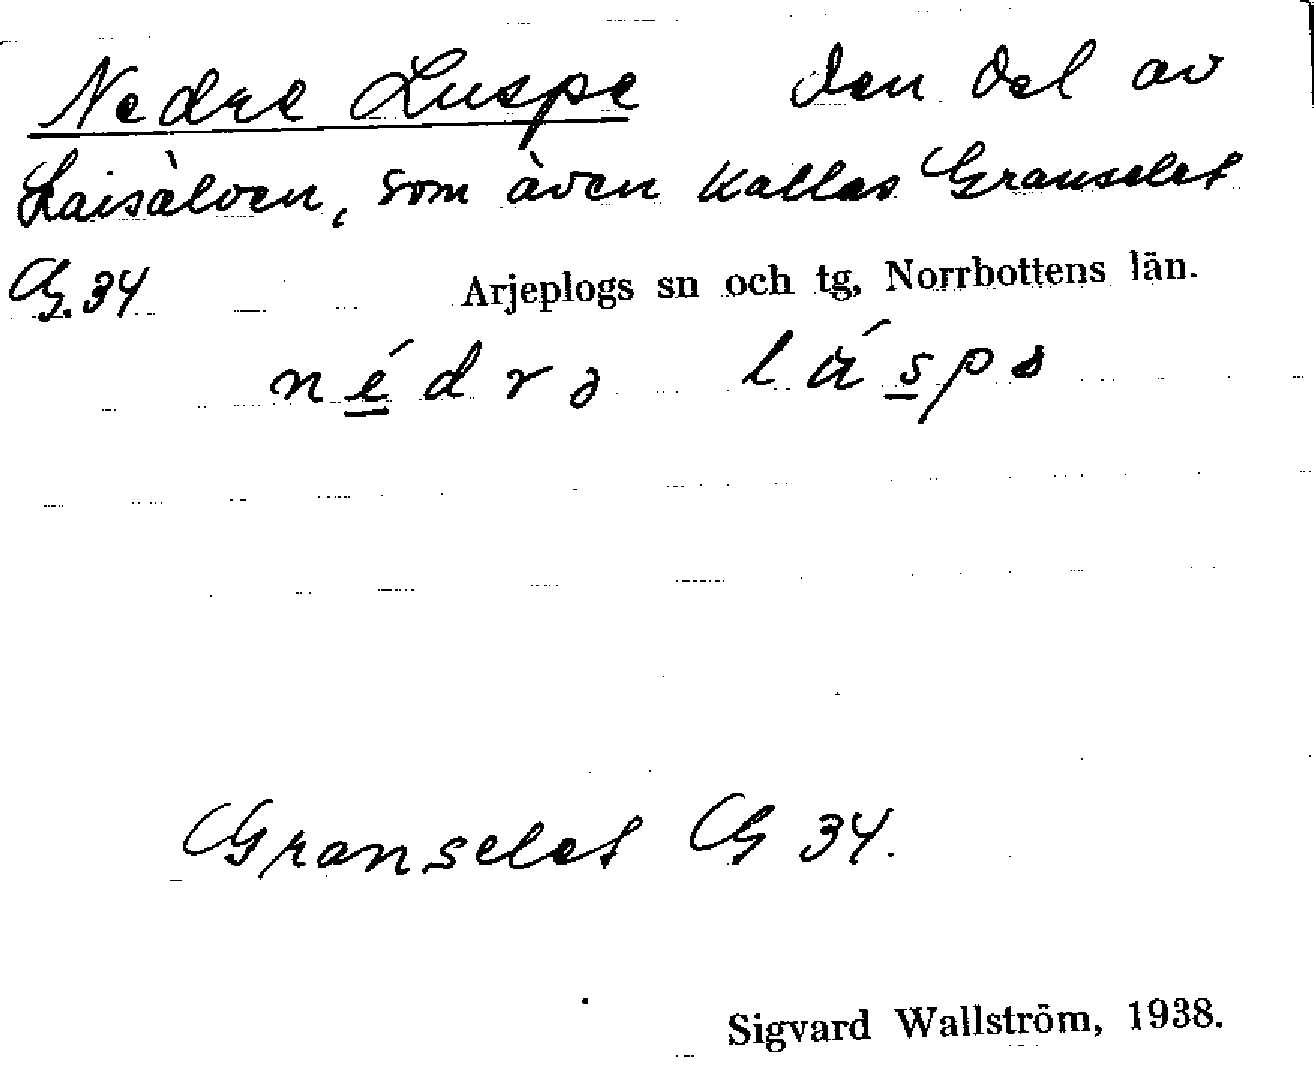 Nedre Luspe den del av
Laisälven, som även kallas Granselet
G.34 Arjeplogs sn och tg, Norrbottens län.
nédrə
Granselet G 34.
Sigvard Wallström, 1938.